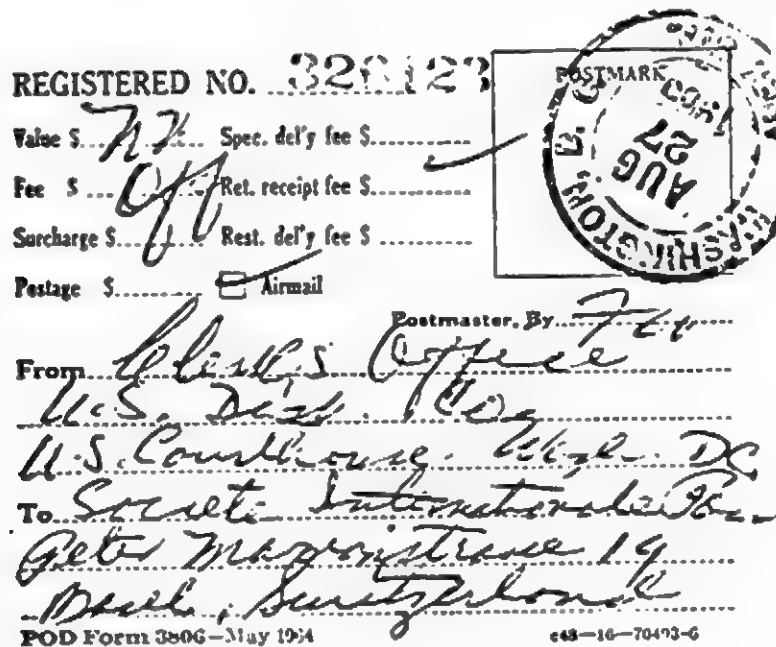 REGISTERED NO. 326123
POSTMARK
WASHINGTON, D. C.
AUG
27
Value $ Spec. del'y fee $
Fee $ Off Ret. receipt fee $
Surcharge $ Rest. del'y fee $
Postage $ Airmail
Postmaster, By
From Clerk's Office
U.S. Dist.
U.S. Courthouse. DC
To Societe Internationale Pour
Peter 19
Basel, Switzerland
POD Form 3806—May 1964
c48—16—70493-6